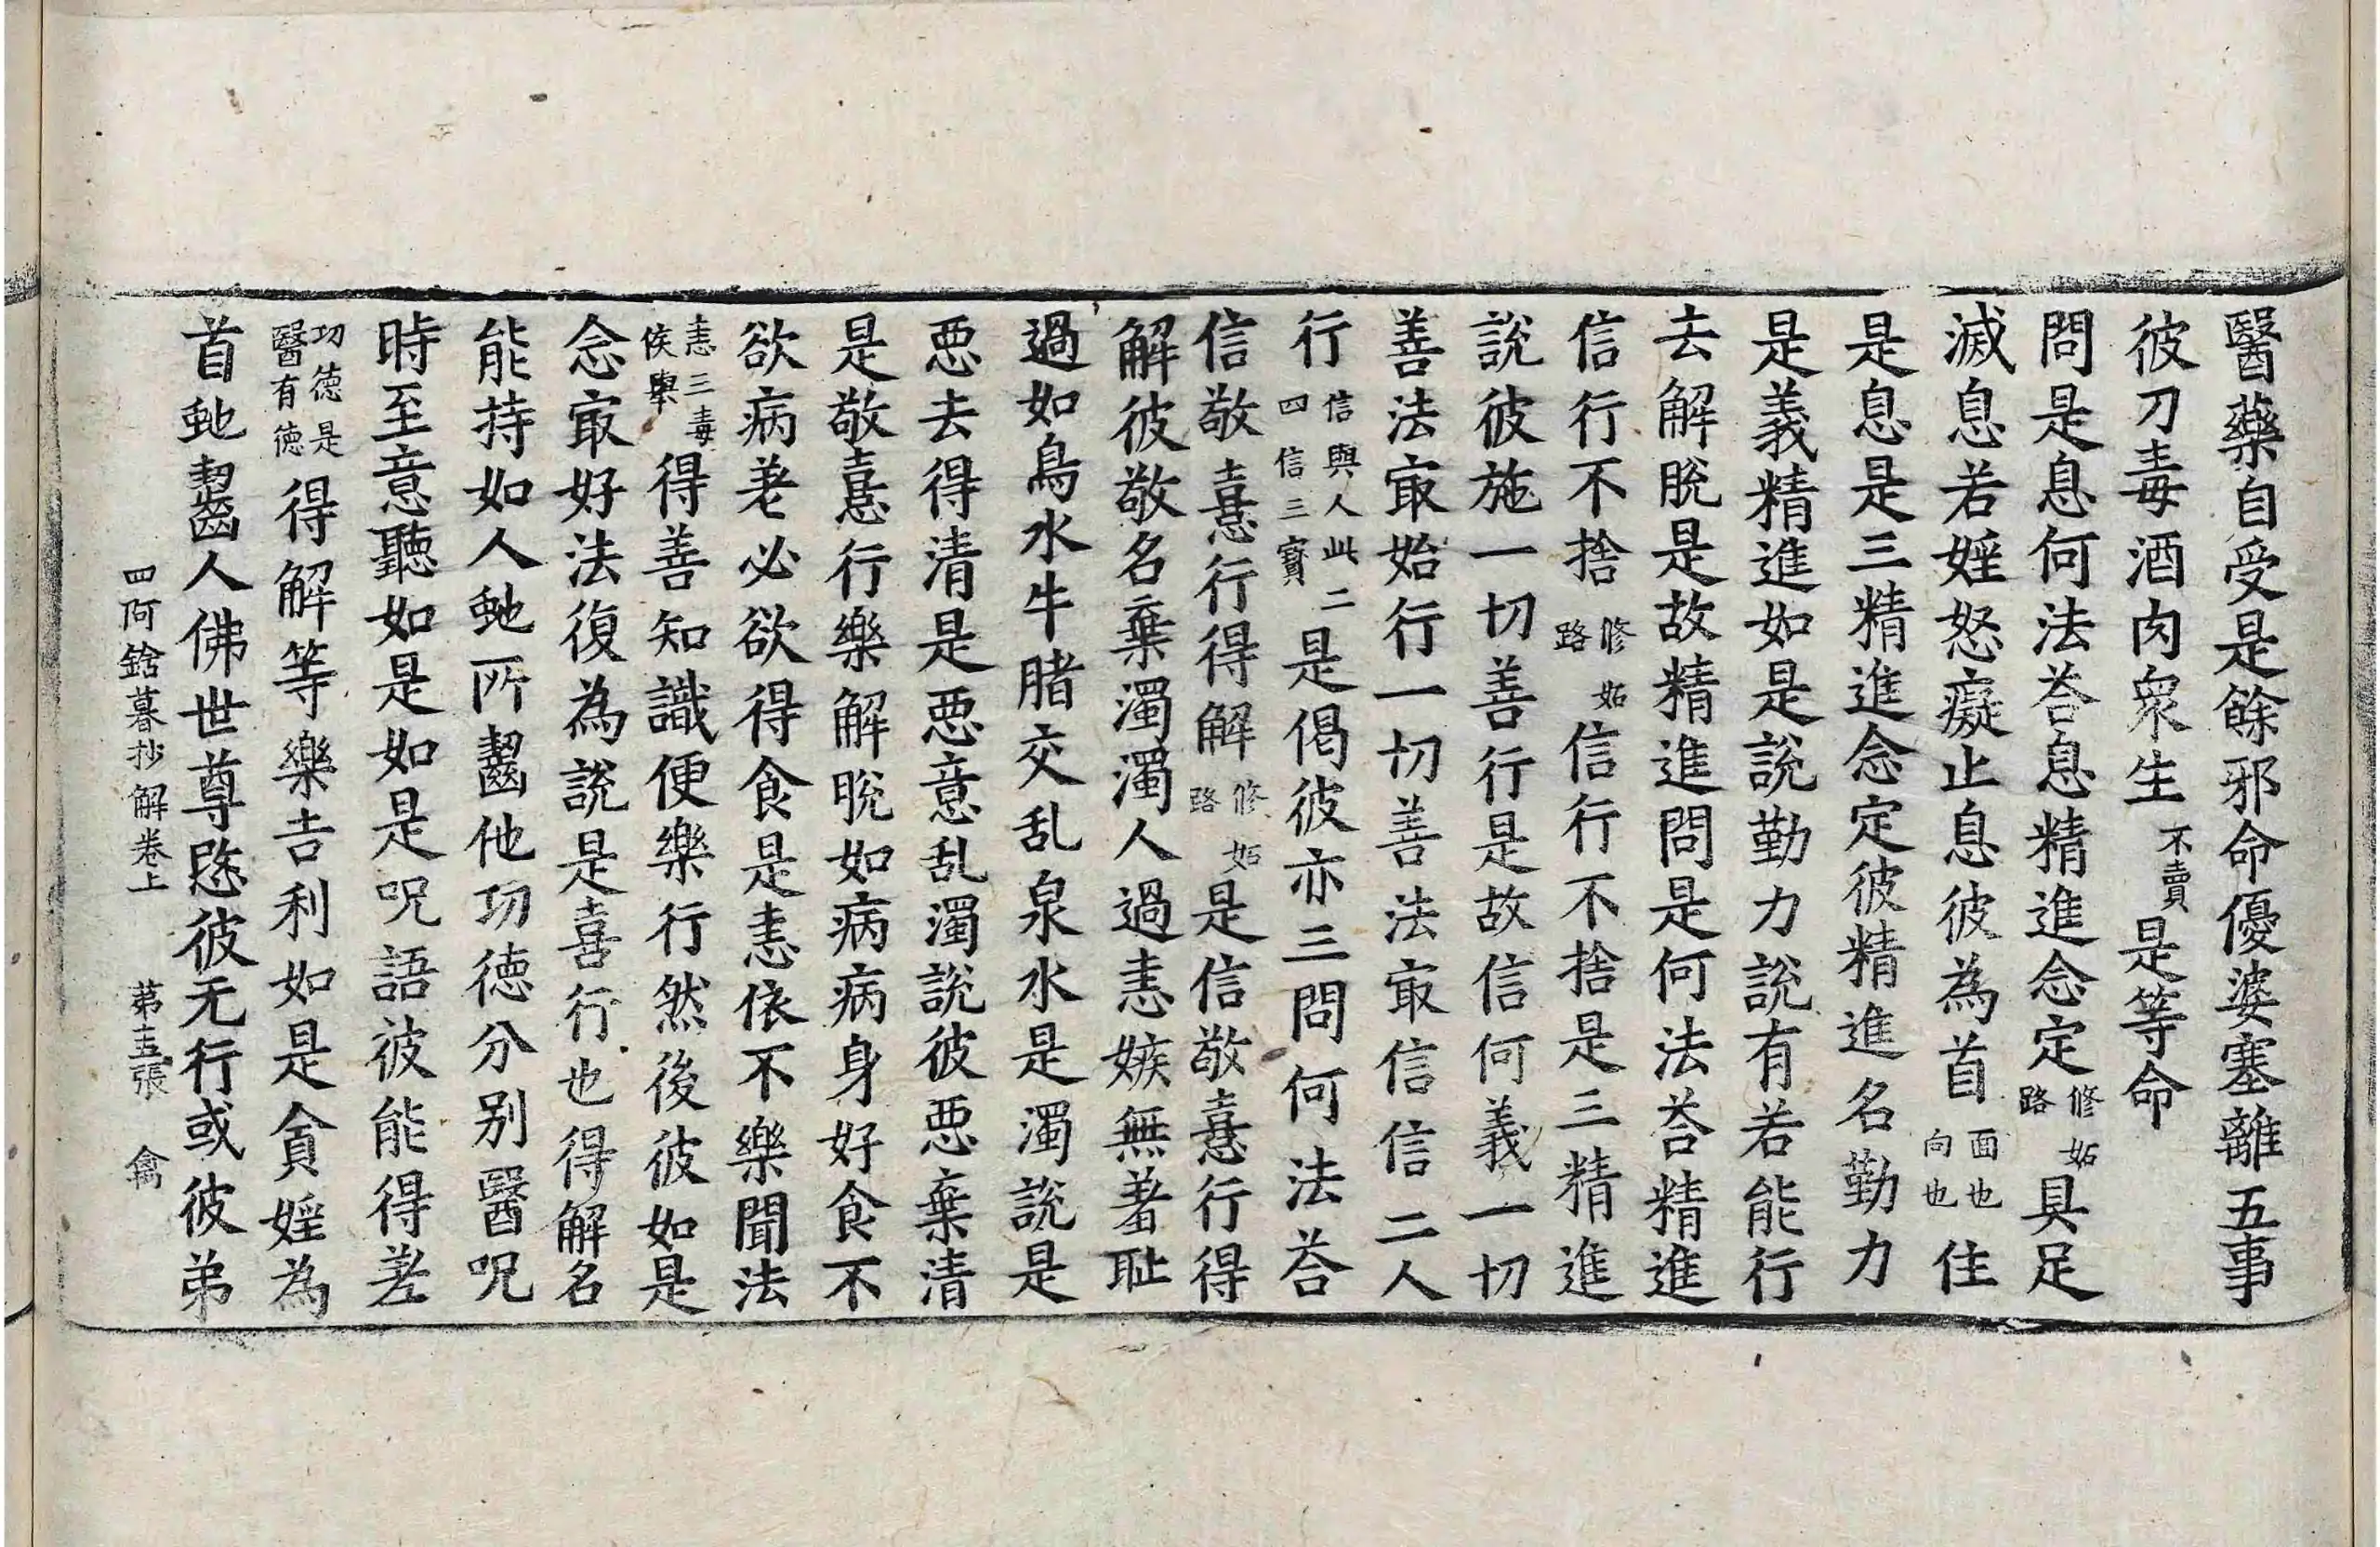 醫藥自受是餘邪命優婆塞離五事
彼刀毒酒肉衆生不賣是等命
問是息何法荅息精進念定修妬路具足
滅息若婬怒癡止息彼為首面也向也住
是息是三精進念定彼精進名勤力
是義精進如是說勤力說有若能行
去解脫是故精進問是何法荅精進
信行不捨修妬路信行不捨是三精進
說彼施一切善行是故信何義一切
善法㝡始行一切善法㝡信信二人
行信與人此二四信三寶是偈彼亦三問何法荅
信敬憙行得解修妬路是信敬憙行得
解彼敬名棄濁濁人過恚嫉無羞耻
過如鳥水牛腤交乱泉水是濁說是
惡去得清是惡意乱濁說彼惡棄清
是敬憙行樂解脫如病病身好食不
欲病差必欲得食是恚依不樂聞法
恚三毒侯舉得善知識便樂行然後彼如是
念㝡好法復為說是喜行也得解名
能持如人虵所齧他功德分别醫呪
時至意聽如是如是呪語彼能得差
功德是醫有德得解等樂吉利如是貪婬為
首虵齧人佛世尊愍彼无行或彼弟
四阿鋡暮抄解卷上 第五張 禽